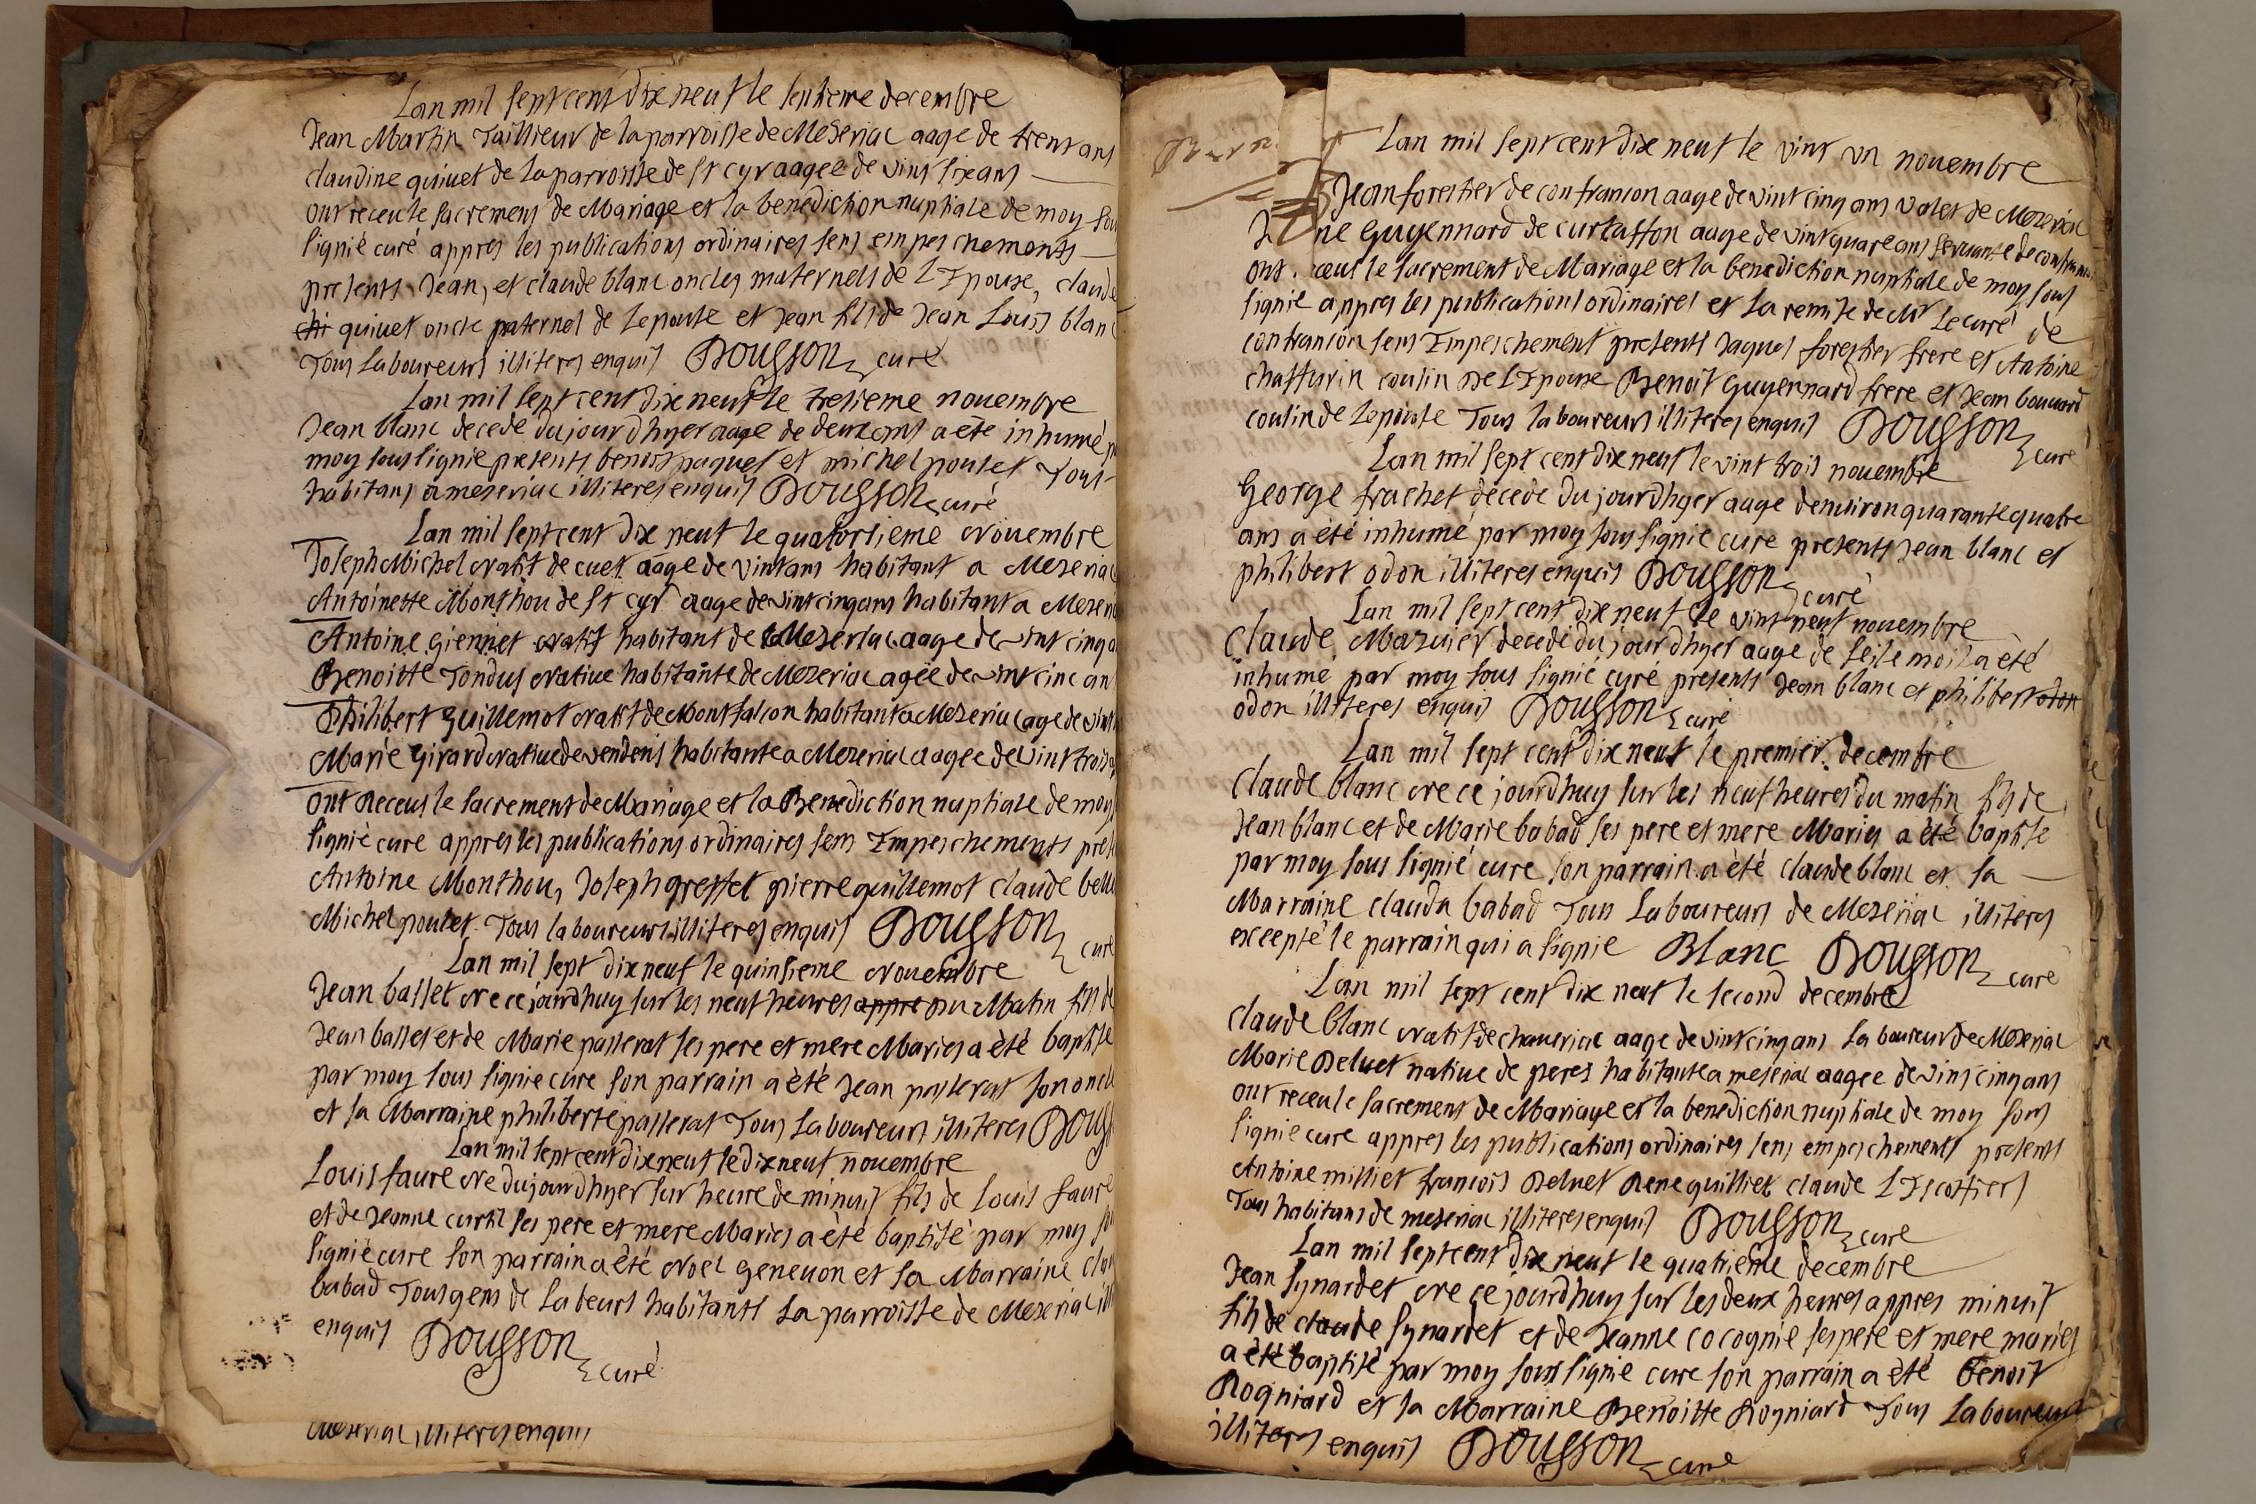 Lan mil sept cent dix neuf le septieme decembre
Jean Martin Taillieur de la parroisse de Mezeriac aage de trent ans
claudine quiuet de la parroisse de st cyr aagee de vint six ans
ont receu le sacrement de Mariage et la benediction nuptiale de moy sou
signié curé appres les publications ordinaires sens empeschements
presents Jean, et claude blanc oncles maternels de LEpouse, claude
quiuet oncle paternel de Lepouse et Jean fils de Jean Louis blanc
Tous Laboureurs illiteres enquis Dousson curé
Lan mil sept cent dix neuf le tresieme nouembre
Jean blanc decede du jour dhyer aage de deux ans a été inhumé p
moy sous signie presents benoit paquet et michel poulet Tous
habitans a meseriac illiteres enquis Dousson curé
Lan mil sept cent dix neuf le quatorsieme Nouembre
Joseph Michel Natif de cuet aage de vint ans habitant a Meseriac
Antoinette Monthou de st cyr aage de vint cinq ans habitant a Meseri
Antoine giennet Natif habitant de Meseriac aage de vint cinq a
Benoitte Tondus Natiue habitante de Mezeriac agée de vint cinc an
Philibert guillemot Natif de Montfalcon habitant a Meseriac age de vint
Marie girard Natiue de vendens habitante a Meseriac aagee de vint trois
ont Receus le sacrement de Mariage et la Benediction nuptiale de moy
signié cure appres les publications ordinaires sens Empeschements pres
Antoine Monthou, Joseph greffet pierre guillemot claude bell
Michel poulet Tous laboureurs illiteres enquis Dousson curé
Lan mil sept dix neuf le quinsieme Nouembre
Jean ballet Ne ce jourdhuy sur les neuf heures appre du Matin fils de
Jean ballet et de Marie passerat ses pere et mere Maries a été baptise
par moy sous signie cure son parrain a été Jean passerat son oncl
et sa Marraine philiberte passerat Tous Laboureurs illiteres Douss
Lan mil sept cent dix neuf le dix neuf nouembre
Louis faure Ne du jour dhyer sur heure de minuit fils de Louis faure
et de Jeanne curtil ses pere et mere Maries a été baptisé par moy so
signié cure son parrain a été Noel geneuon et sa Marraine cla
babad Tous gens de Labeurs habitants La parroisse de Meseriac ill
enquis Dousson curé
Meseriac illiteres enquis
Lan mil sept cent dix neuf le vint un nouembre
Jean forestier de confrancon aage de vint cinq ans valet de Mezeriac
ne guyennard de curtaffon aage de vint quatre ans seruante de confran
ont ceus le sacrement de Mariage et la benediction nuptiale de moy sous
signie appres les publications ordinaires et la remise de Mr Le curé de
confrancon sens Empeschement presents Jaques forestier frere et Antoine
chaffurin cousin De LEpoux Benoit guyennard frere et Jean bouuard
cousin de Lepouse Tous laboureurs illiteres enquis Dousson curé
Lan mil sept cent dix neuf le vint trois nouembre
George frachet decede du jourdhyer aage denuiron quarante quatre
ans a été inhumé par moy sous signié cure presents Jean blanc et
philibert odon illiteres enquis Dousson curé
Lan mil sept cent dix neuf le vint neuf nouembre
Claude Mazuier decede du jour dhyer aage de seise mois a été
inhumé par moy sous signié curé presents Jean blanc et philibert odon
odon illiteres enquis Dousson curé
Lan mil sept cent dix neuf le premier decembre
Claude blanc Ne ce jourdhuy sur les neuf heures du matin fils de
Jean blanc et de Marie babad ses pere et mere Maries a été baptise
par moy sous signié cure son parrain a été claude blanc et sa
Marraine clauda babad Tous Laboureurs de Meseriac illiteres
excepté le parrain qui a signie Blanc Dousson curé
Lan mil sept cent dix neuf le second decembre
Claude blanc Natif de chaueriac aage de vint cinq ans Laboureur de Meseriac
Marie Deluet natiue de peres habitante a meseriac aagee de vint cinq ans
ont receu le sacrement de Mariage et la benediction nuptiale de moy sous
signie cure appres les publications ordinaires sens empeschements presents
Antoine milliet francois Deluet Rene guilliet claude LEscoffier
Tous habitans de meseriac illiteres enquis Dousson cure
Lan mil sept cent dix neuf le quatrième decembre
Jean synardet Ne ce jourdhuy sur les deux heures appres minuit
fils de claude synardet et de Jeanne cocognie ses pere et mere maries
a été baptisé par moy sous signie cure son parrain a été benoit
Rogniard et sa Marraine Benoitte Rogniard Tous Laboureurs
illiteres enquis Dousson curé